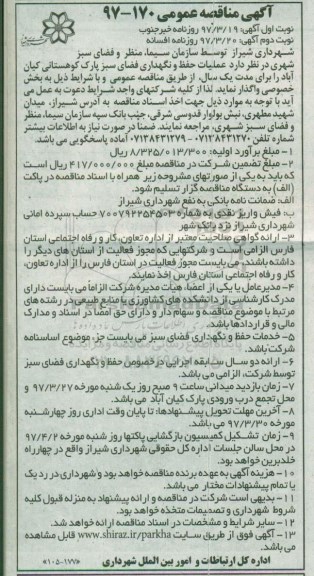 آگهی مناقصه عمومی ۱۷۰-۹۷
نوبت اول آگهی: ۹۷/۳/۱۹ روزنامه خبرجنوب
نوبت دوم آگهی: ۹۷/۳/۲۰ روزنامه افسانه
شهرداری شیراز توسط سازمان سیما، منظر و فضای سبز
شهری در نظر دارد عملیات حفظ و نگهداری فضای سبز پارک کوهستانی کیان
آباد را برای مدت یک سال، از طریق مناقصه عمومی و با شرایط ذیل به بخش
خصوصی واگذار نماید. لذا از کلیه شرکتهای واجد شرایط دعوت به عمل می
آید با توجه به موارد ذیل جهت اخذ اسناد مناقصه به آدرس شیراز، میدان
شهید مطهری، نبش بولوار قدوسی شرقی، جنب بانک سپه سازمان سیما، منظر
و فضای سبز شهری، مراجعه نمایند. ضمنا در صورت نیاز به اطلاعات بیشتر
شماره تلفن ۰۷۱۳۸۴۳۱۲۷۰-۰۷۱۳۸۴۳۱۲۷۲ آماده پاسخگویی می باشد.
۱- مبلغ برآورد اولیه: ۸/۳۲۵/۰۱۳/۳۰۰ ریال
۲- مبلغ تضمین شرکت در مناقصه مبلغ ۴۱۷/۰۰۰/۰۰۰ ریال است
که باید به یکی از صورتهای مشروحه زیر همراه با اسناد مناقصه در پاکت
(الف) به دستگاه مناقصه گزار تسلیم شود.
الف: ضمانت نامه بانکی به نفع شهرداری شیراز
ب: فیش واریز نقدی به شماره ۷۰۰۷۹۲۲۵۴۵۰۳ حساب سپرده امانی
شهرداری شیراز نزد بانک شهر
۳- ارائه گواهی صلاحیت معتبر از اداره تعاون، کار و رفاه اجتماعی استان
فارس الزامی است و شرکتهایی که مجوز فعالیت از استان های دیگر را
داشته باشند، می بایست مجوز فعالیت در استان فارس را از اداره تعاون،
کار و رفاه اجتماعی استان فارس اخذ نمایند.
۴- مدیرعامل یا یکی از اعضاء هیأت مدیره شرکت الزاما می بایست دارای
مدرک کارشناسی از دانشکده های کشاورزی یا منابع طبیعی در رشته های
مرتبط با موضوع مناقصه و سهام دار و دارای حق امضا در اسناد و مدارک
مالی و قراردادها باشد.
۵- خدمات حفظ و نگهداری فضای سبز می بایست جزء موضوع اساسنامه
شرکت باشد.
۶- ارائه دو سال سابقه اجرایی در خصوص حفظ و نگهداری فضای سبز
توسط شرکت، الزامی می باشد.
۷- زمان بازدید میدانی ساعت ۹ صبح روز یک شنبه مورخه ۹۷/۳/۲۷ و
محل تجمع درب ورودی پارک کیان آباد می باشد.
۸- آخرین مهلت تحویل پیشنهادها: تا پایان وقت اداری روز چهارشنبه
مورخه ۹۷/۳/۳۰ می باشد.
۹- زمان تشکیل کمیسیون بازگشایی پاکتها روز شنبه مورخه ۹۷/۴/۲
در محل سالن جلسات اداره کل حقوقی شهرداری شیراز واقع در چهارراه
خلدبرین خواهد بود.
۱۰- هزینه آگهی به عهده برنده مناقصه خواهد بود و شهرداری در رد یک
یا تمام پیشنهادات مختار می باشد.
۱۱- بدیهی است شرکت در مناقصه و ارائه پیشنهاد به منزله قبول کلیه
شروط شهرداری و تصمیمات متخذه خواهد بود.
۱۲- سایر شرایط و مشخصات در اسناد مناقصه ارائه خواهد شد.
۱۳- آگهی فوق از طریق سایت www.shiraz.ir/parkha قابل مشاهده
می باشد.
اداره کل ارتباطات و امور بین الملل شهرداری «۱۰۵-۱۷۷»